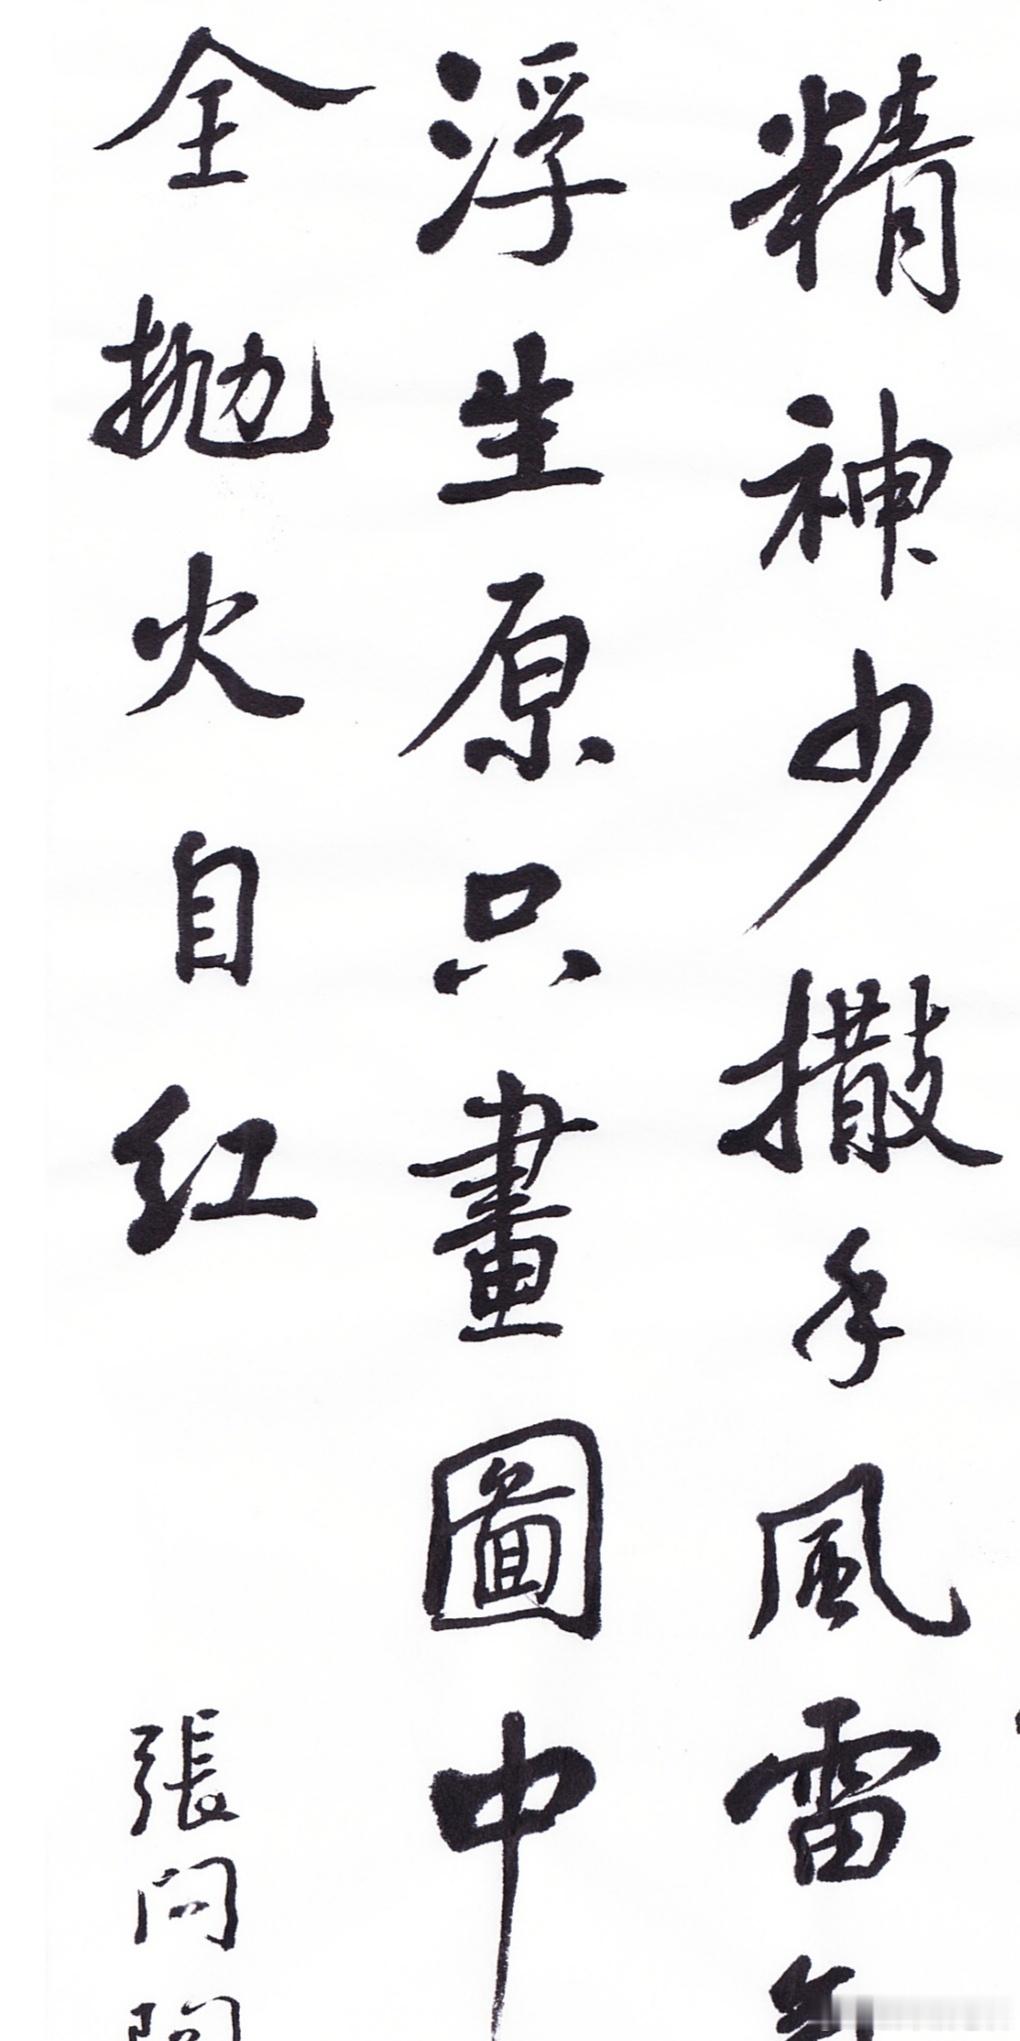 精神少撒手風雷
浮生原只畫圖中
全抛火自红
張問